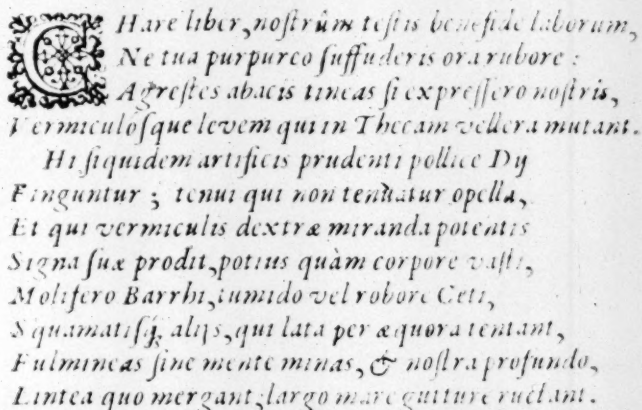 CHare liber, noſtrûm teſtis benefide laborum,
Ne tua purpureo ſuffuderis ora rubore:
Agreſtes abacis tineas ſi expreſſero noſtris,
Vermiculoſque levem qui in Thecam vellera mutant.
Hi ſiquidem artificis prudenti pollice Dij
Finguntur; tenui qui non tenuatur opella,
Et qui vermiculis dextræ miranda potentis
Signa ſuæ prodit, potius quàm corpore vaſti,
Moliſero Barrhi, tumido vel robore Ceti,
Squamatiſq; alijs, qui lata per æquora tentant,
Fulmineas ſine mente minas, & noſtra profundo,
Lintea quo mergant, largo mare gutture ructant.